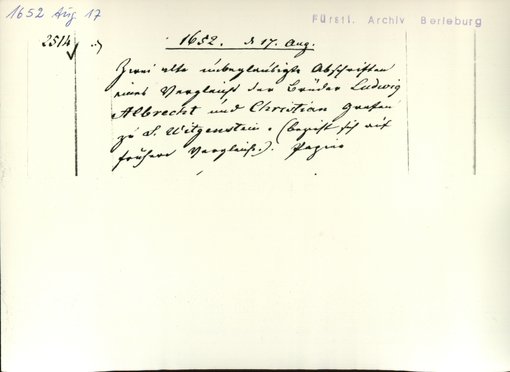 1652 Aug 17
Fürstl. Archiv Berleburg
2514
1652. d 17. Aug.
Zwei alte unbeglaubigte Abschriften
eines Vergleichs der Brüder Ludwig
Albrecht und Christian Grafen
zu S. Witgenstein. (bezieht sich auf
frühere Vergleiche.). Papier